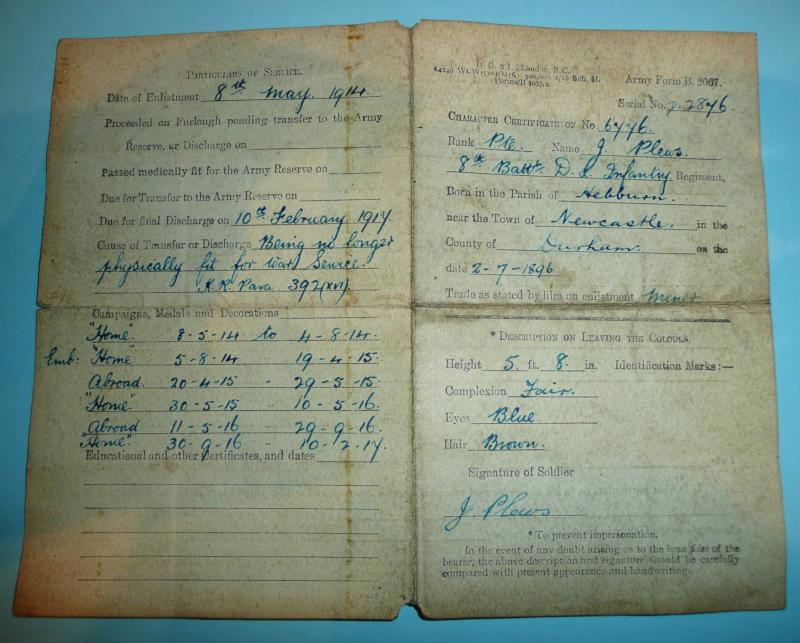 PARTICULARS OF SERVICE.
Date of Enlistment 8th May 1914.
Proceeded on Furlough pending transfer to the Army
Reserve, or Discharge on
Passed medically fit for the Army Reserve on
Due for Transfer to the Army Reserve on
Due for final Discharge on 10th February 1917
Cause of Transfer or Discharge Being no longer
physically fit for War Service.
K.R. Para 392 (xvi)
Campaigns, Medals and Decorations
"Home" 8-5-14 to 4-8-14.
Emb: "Home" 5-8-14 " 19-4-15.
Abroad. 20-4-15 " 29-5-15.
"Home" 30-5-15 " 10-5-16.
Abroad 11-5-16 " 29-9-16.
"Home" 30-9-16 " 10-2-17.
Educational and other Certificates, and dates
D. D. & L., London, E.C.
Army Form B. 2067.
Serial No. P. 2876.
CHARACTER CERTIFICATE OF No. 6776.
Rank Pte. Name J. Plews.
8th Battn. D. L. Infantry Regiment,
Born in the Parish of Hebburn.
near the Town of Newcastle. in the
County of Durham. on the
date 2-7-1896
Trade as stated by him on enlistment Miner
* DESCRIPTION ON LEAVING THE COLOURS.
Height 5 ft. 8 in. Identification Marks:—
Complexion Fair.
Eyes Blue
Hair Brown.
Signature of Soldier
J. Plews
* To prevent impersonation.
In the event of any doubt arising as to the bona fides of the
bearer, the above description and signature should be carefully
compared with present appearance and handwriting.